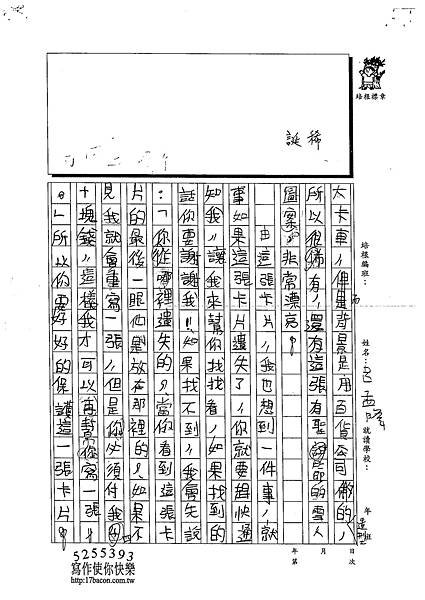 培根標章
稀
誕
培根編班：
姓名：
就讀學校：
年
班
大卡車，但是背景是用百貨公司佈的，
所以很稀有，還有這張有聖誕節的雪人
圖案，非常漂亮。
由這張卡片，我也想到一件事，就
事如果這張卡片遺失了，你就要趕快通
知我，讓我來幫你找找看，如果找到的
話你要謝謝我，如果找不到，我會先說
：「你從哪裡遺失的？當你看到這張卡
片的最後一眼他是放在那裡的？如果不
見我就會重寫一張，但是你必須付我四
十塊錢，這樣我才可以再幫你寫一張。
」所以你要好好的保護這一張卡片。
年 月 日
第 次
5255393
寫作使你快樂
http://17bacon.com.tw